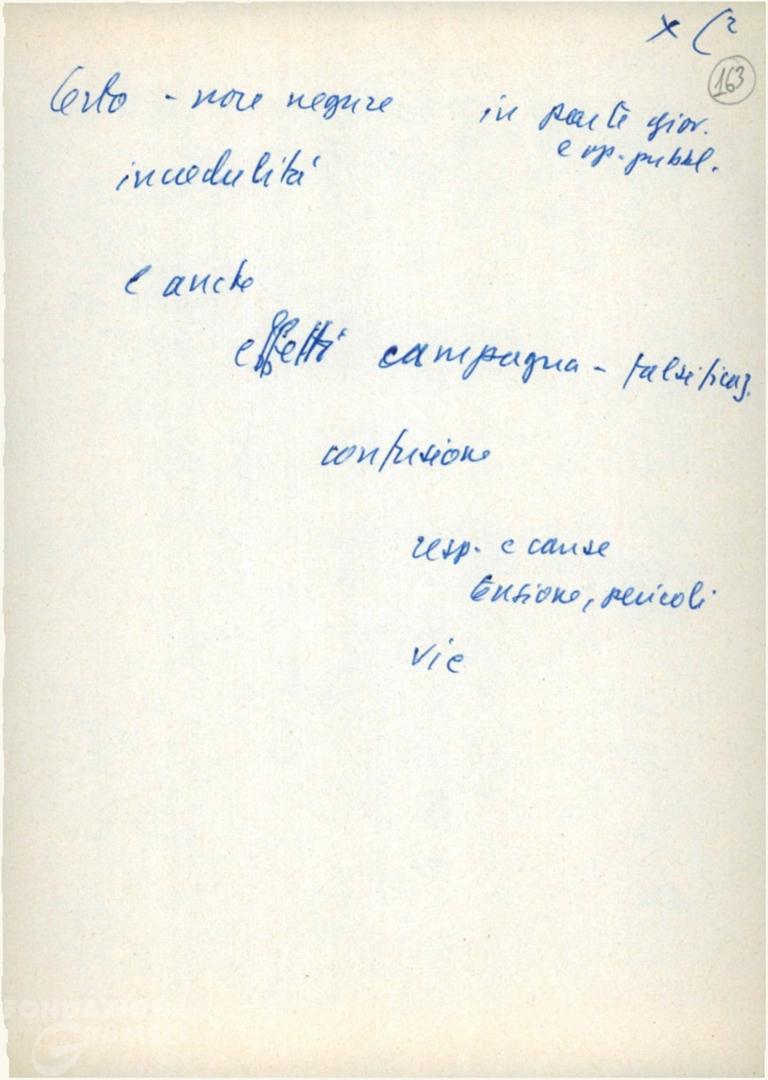 x (2
163
Certo - non negare in parte gior.
e op. pubbl.
incredulità
e anche
effetti campagna - falsificaz.
confusione
resp. e cause
tensione, pericoli
vie
FONDAZIONE
GRAMSCI